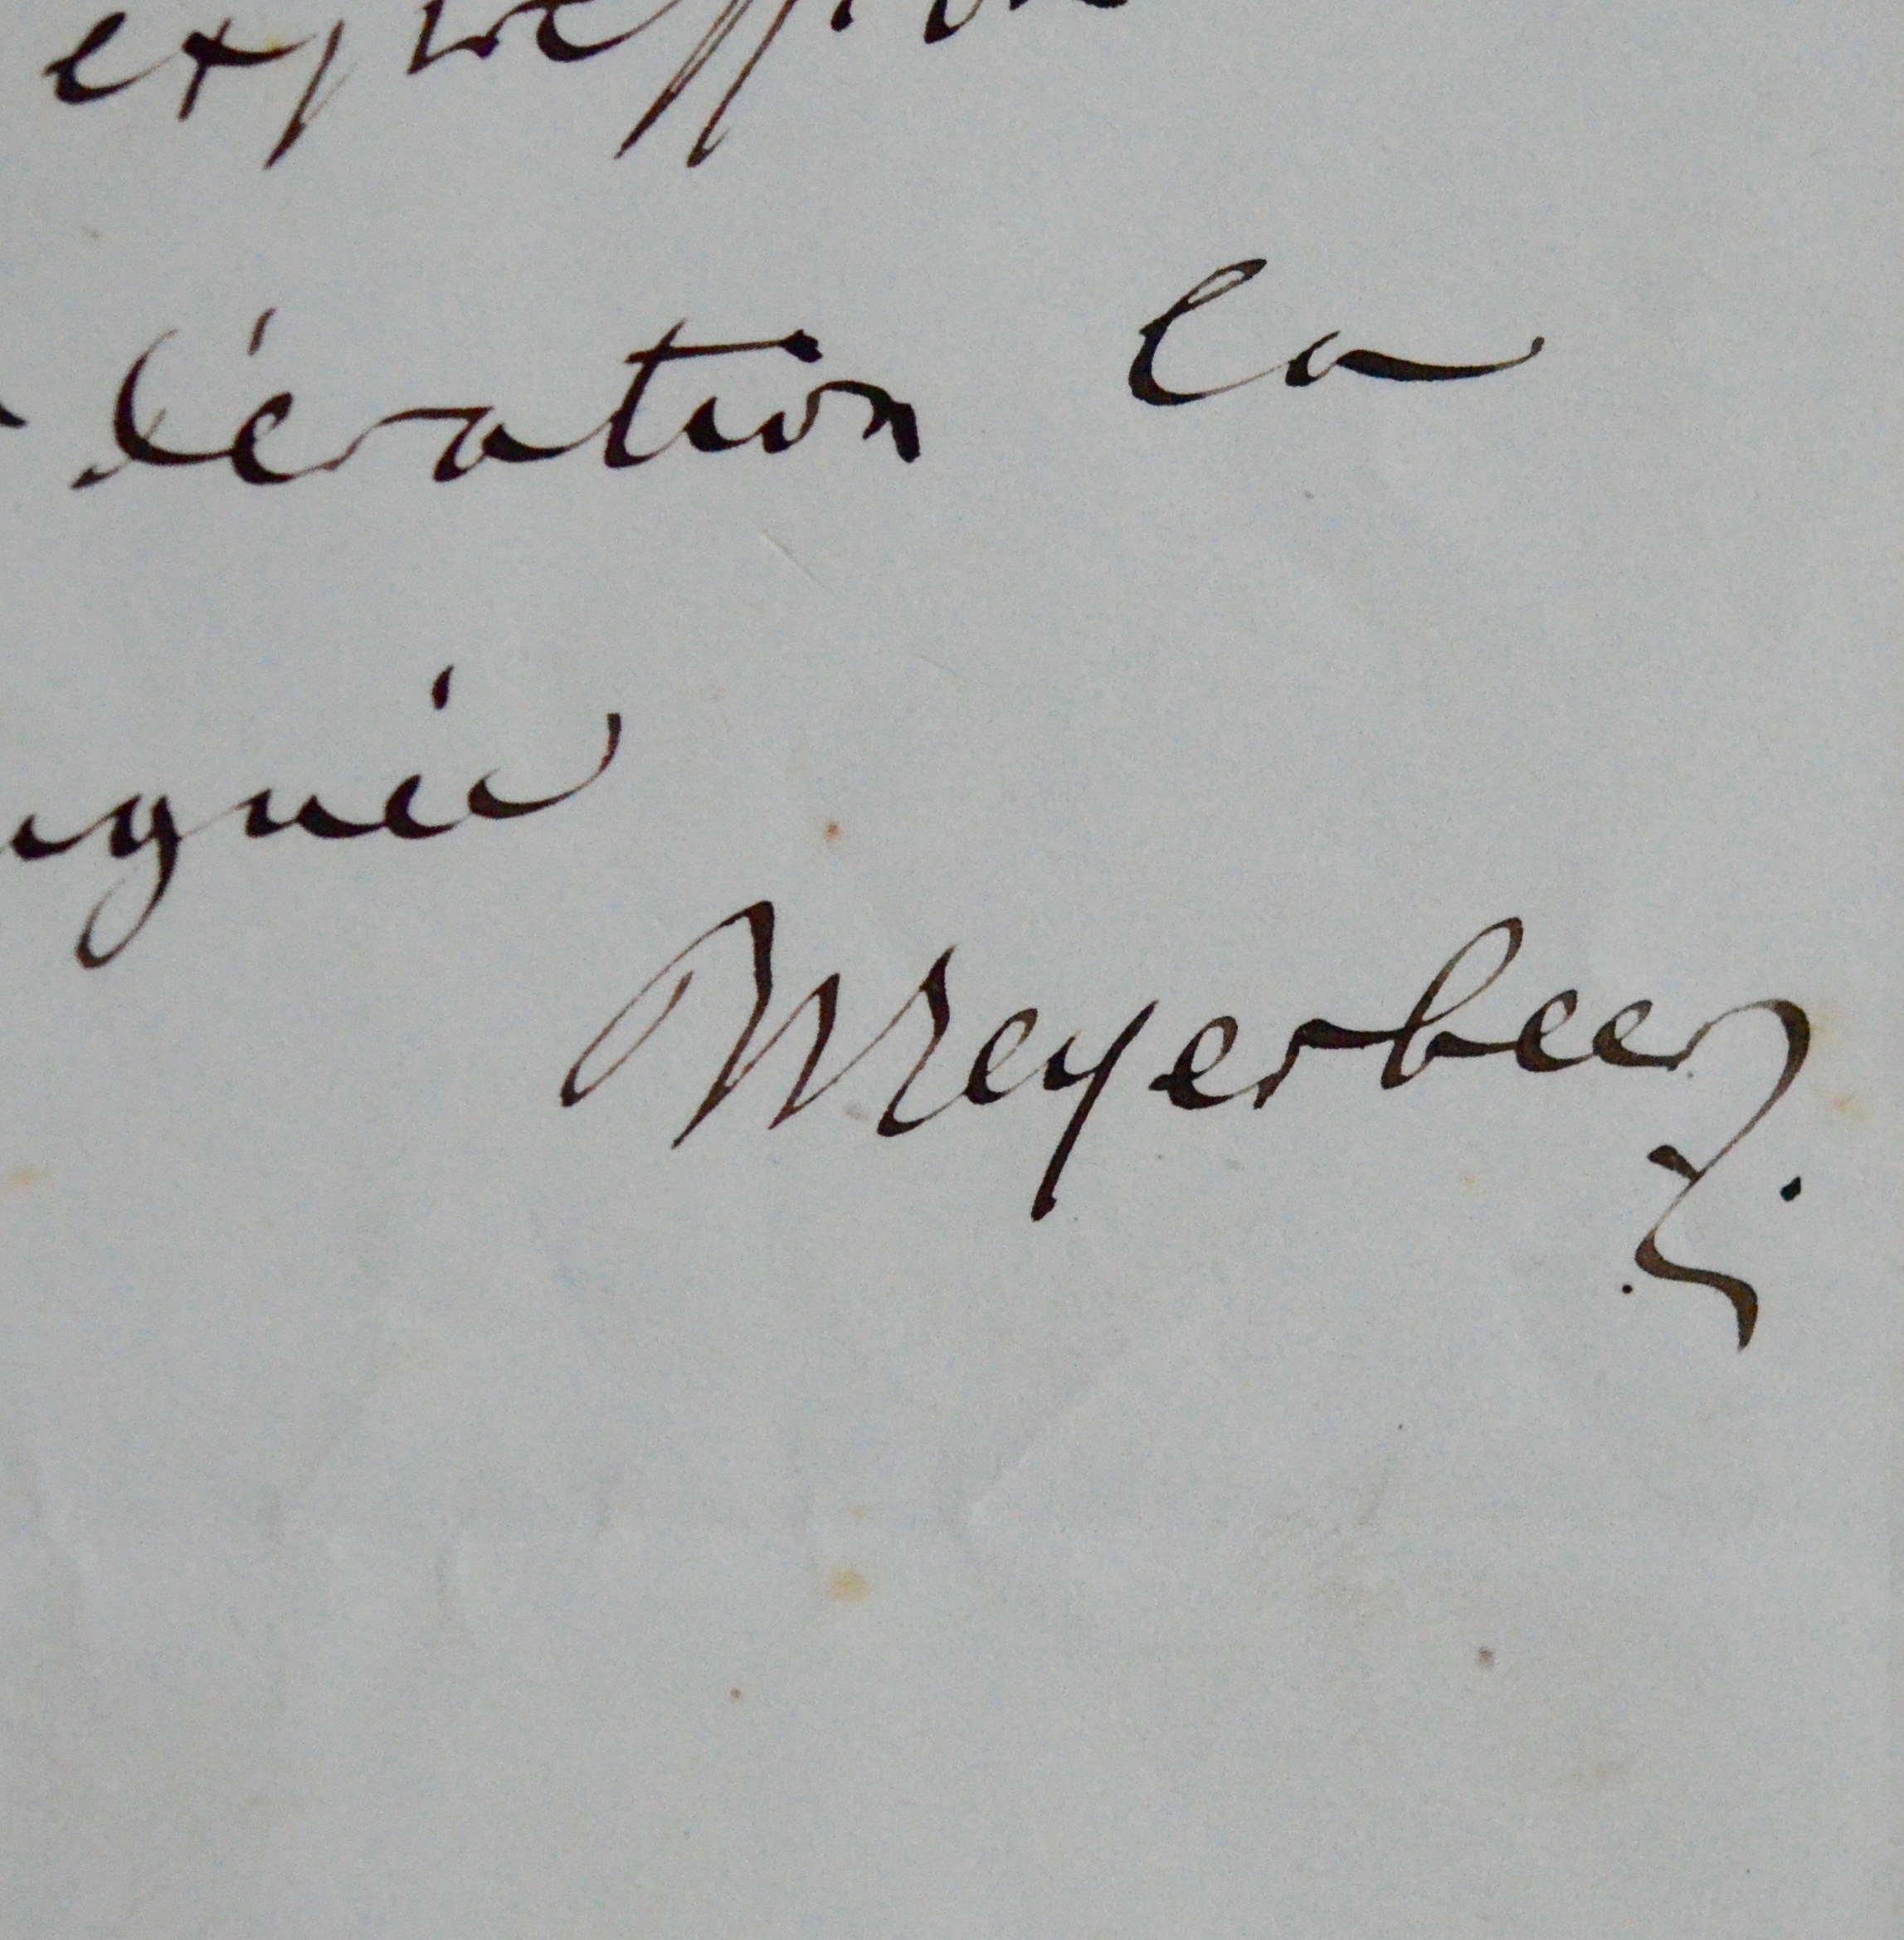 expression
dération la
inguée
Meyerbeer